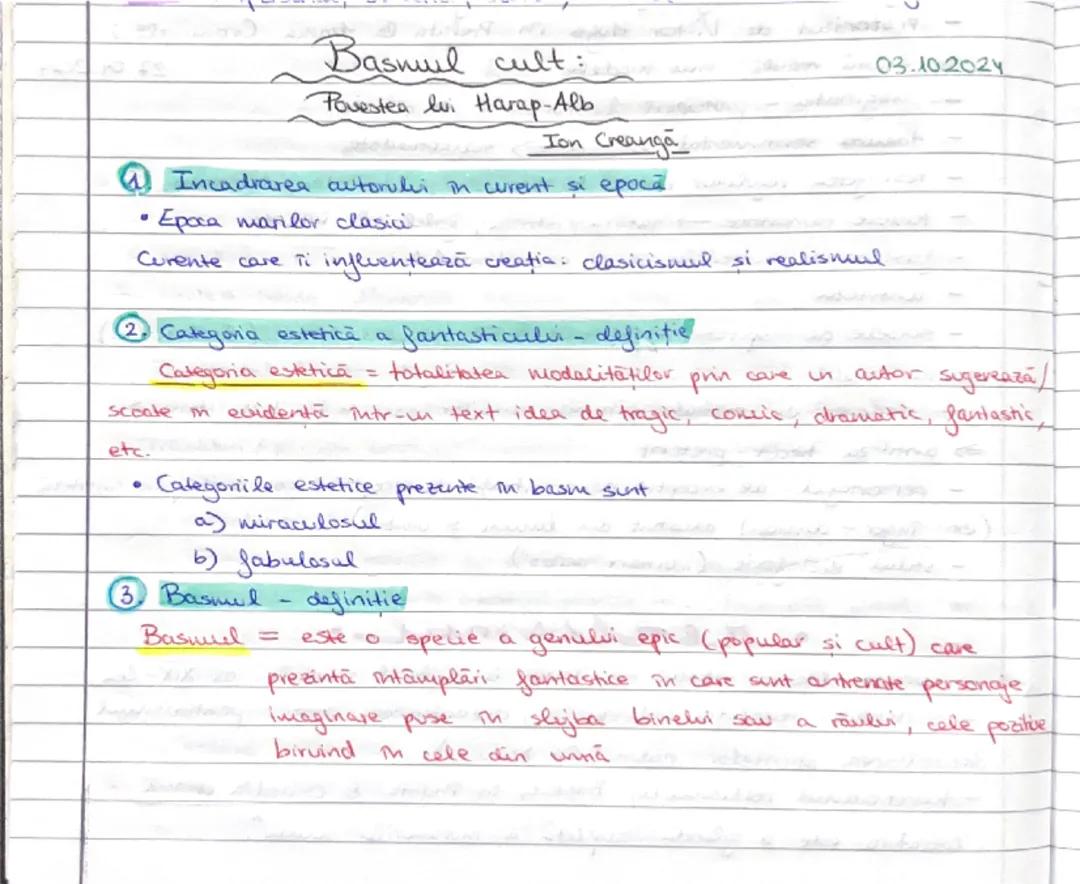 Basmul cult:
03.10.2024
Povestea lui Harap-Alb
Ion Creangă
1. Încadrarea autorului în curent și epocă
• Epoca marilor clasici
Curente care îi influențează creația: clasicismul și realismul
2. Categoria estetică a fantasticului - definiție
Categoria estetică = totalitatea modalităților prin care un autor sugerează/
scoate în evidență într-un text idea de tragic, comic, dramatic, fantastic,
etc.
• Categoriile estetice prezente în basm sunt
a) miraculosul
b) fabulosul
3. Basmul - definiție
Basmul = este o specie a genului epic (popular și cult) care
prezintă întâmplări fantastice în care sunt antrenate personaje
imaginare puse în slujba binelui sau a răului, cele pozitive
biruind în cele din urmă